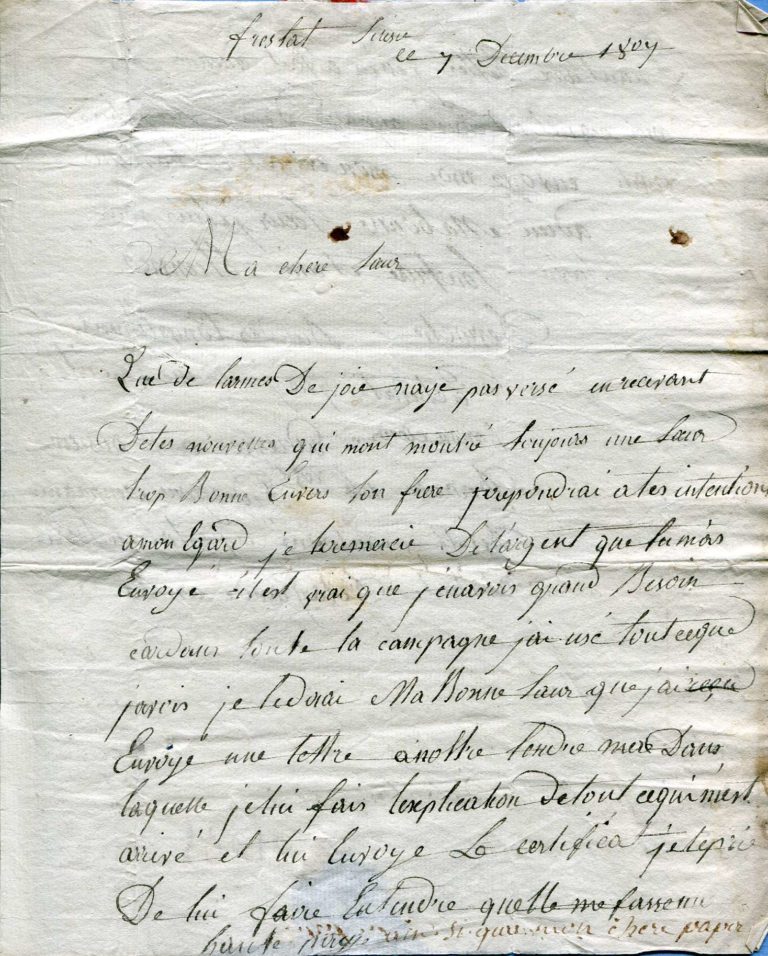 frostat
ce 7 Decembre 1807
Ma chere Sœur
Que De larmes De joie naije pas versé en recevant
Detes nouvelles qui mont montré toujours une Sœur
trop Bonne Envers Son frere jerepondrai a tes intentions
amon Egard je teremercie De largent que tumas
Envoyé il est vrai que jenavois grand Besoin
cardans toute la campagne jai usé toutceque
javois je tedirai Ma Bonne Sœur que jai reçu
Envoyé une lettre anottre tendre mere Dans
laquelle jelui fais lexplication detout cequimest
arrivé et lui Envoye Le certificat jeteprie
De lui faire Entendre quelle me fasse un
ainsi que mon chere papa